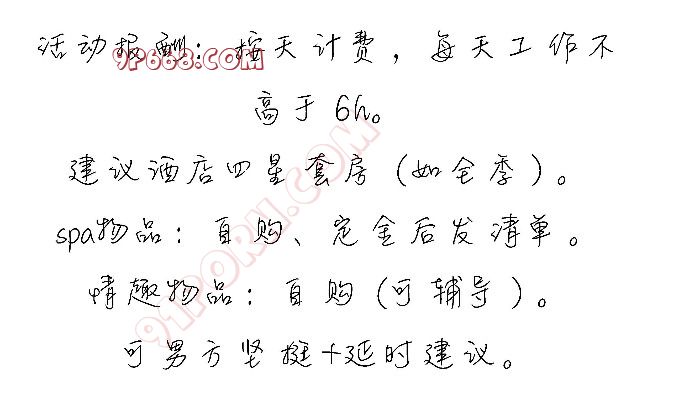 活动报酬：按天计费，每天工作不
高于6h。
建议酒店四星套房（如全季）。
spa物品：自购、定金后发清单。
情趣物品：自购（可辅导）。
可男方坚挺+延时建议。
91P668.COM
91PORN.COM